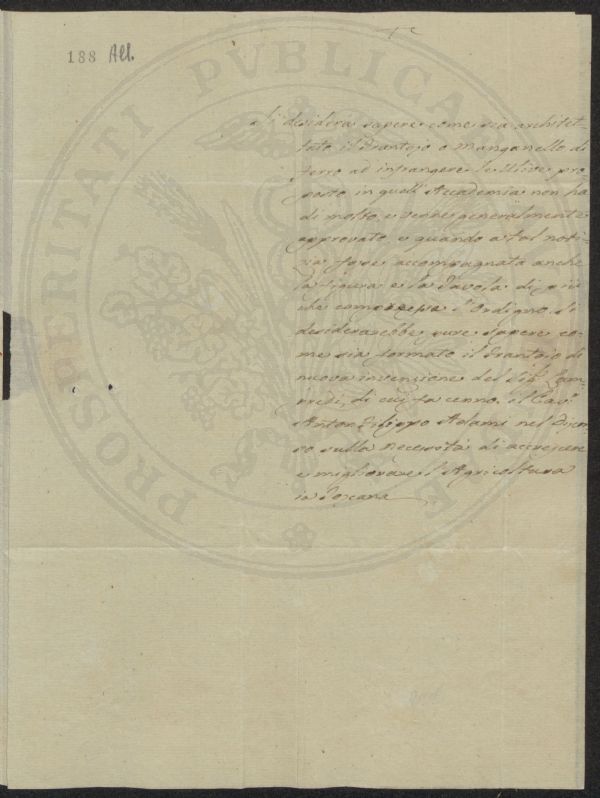 188 All.
PROSPERITATI PVBLICAE
Si desidera sapere come sia architet-
tato il Frantojo o Manganello di
ferro ad infrangere le Ulive pro-
posto in quell' Accademia non ha
di molto, e venne generalmente
approvato, e quando a tal noti-
zia fosse accompagnata anche
la figura e la Tavola di più
che l'Ordigno. Si
desiderarebbe pure sapere co-
me sia formato il Frantoio di
nuova invenzione del Sig.
di cui fa cenno il Cav.
Anton Filippo Adami nel Discor-
so sulla necessità di accrescere
e migliorare l'Agricoltura
in Toscana